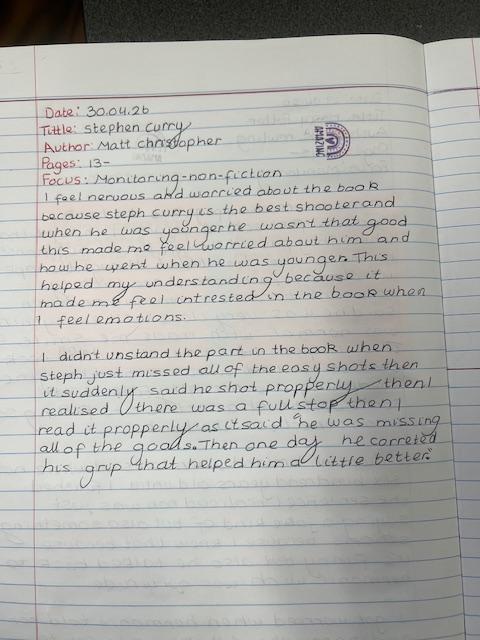 Date: 30.04.26
Tittle: stephen curry
Author: Matt christopher
Pages: 13-
AMAZING
Focus: Monitoring-non-fiction
I feel nervous and worried about the book
because steph curry is the best shooter and
when he was younger he wasnt that good
this made me feel worried about him and
how he went when he was younger. This
helped my understanding because it
made me feel intrested in the book when
I feel emotions.
I didn't unstand the part in the book when
steph just missed all of the easy shots then
it suddenly said he shot propperly then I
realised there was a full stop then I
read it propperly as it said "he was missing
all of the goals. Then one day he correted
his grip that helped him a little better."